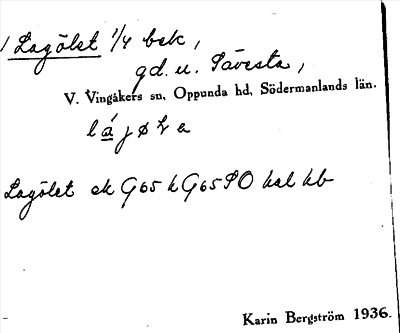 Lagölet 1/4 bek,
gd. u. Sävesta,
V. Vingåkers sn, Oppunda hd, Södermanlands län.
Lagölet ek G65 k G65 SO kal kb
Karin Bergström 1936.